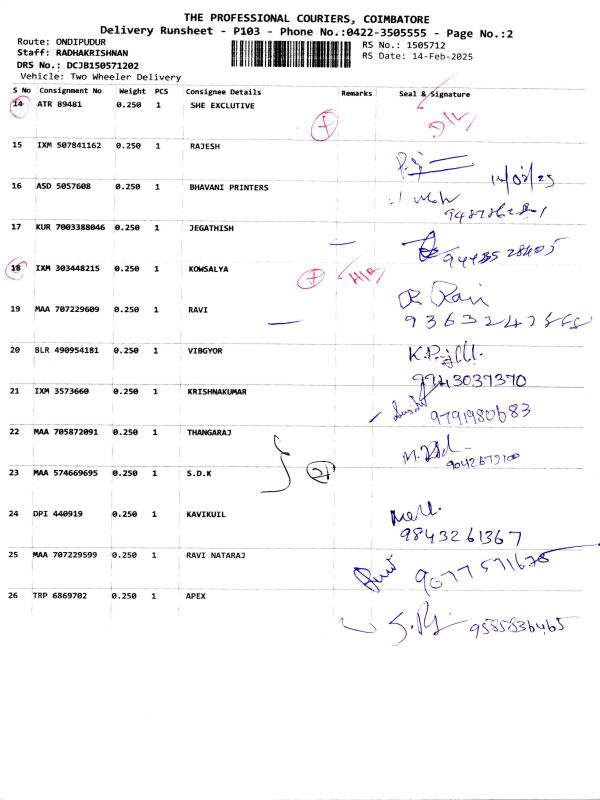 THE PROFESSIONAL COURIERS, COIMBATORE
Delivery Runsheet - P103 - Phone No.:0422-3505555 - Page No.:2
Route: ONDIPUDUR
RS No.: 1505712
Staff: RADHAKRISHNAN
RS Date: 14-Feb-2025
DRS No.: DCJB150571202
Vehicle: Two Wheeler Delivery
S No Consignment No Weight PCS Consignee Details Remarks Seal & Signature
14 ATR 89481 0.250 1 SHE EXCLUTIVE
D/L
15 IXM 507841162 0.250 1 RAJESH
14/02/25
16 ASD 5057608 0.250 1 BHAVANI PRINTERS
17 KUR 7003388046 0.250 1 JEGATHISH
18 IXM 303448215 0.250 1 KOWSALYA
19 MAA 707229609 0.250 1 RAVI
R Ravi
20 BLR 490954181 0.250 1 VIBGYOR
9943037370
21 IXM 3573660 0.250 1 KRISHNAKUMAR
9791980683
22 MAA 705872091 0.250 1 THANGARAJ
23 MAA 574669695 0.250 1 S.D.K
24 DPI 440919 0.250 1 KAVIKUIL
9843261367
25 MAA 707229599 0.250 1 RAVI NATARAJ
26 TRP 6869702 0.250 1 APEX
9585836465